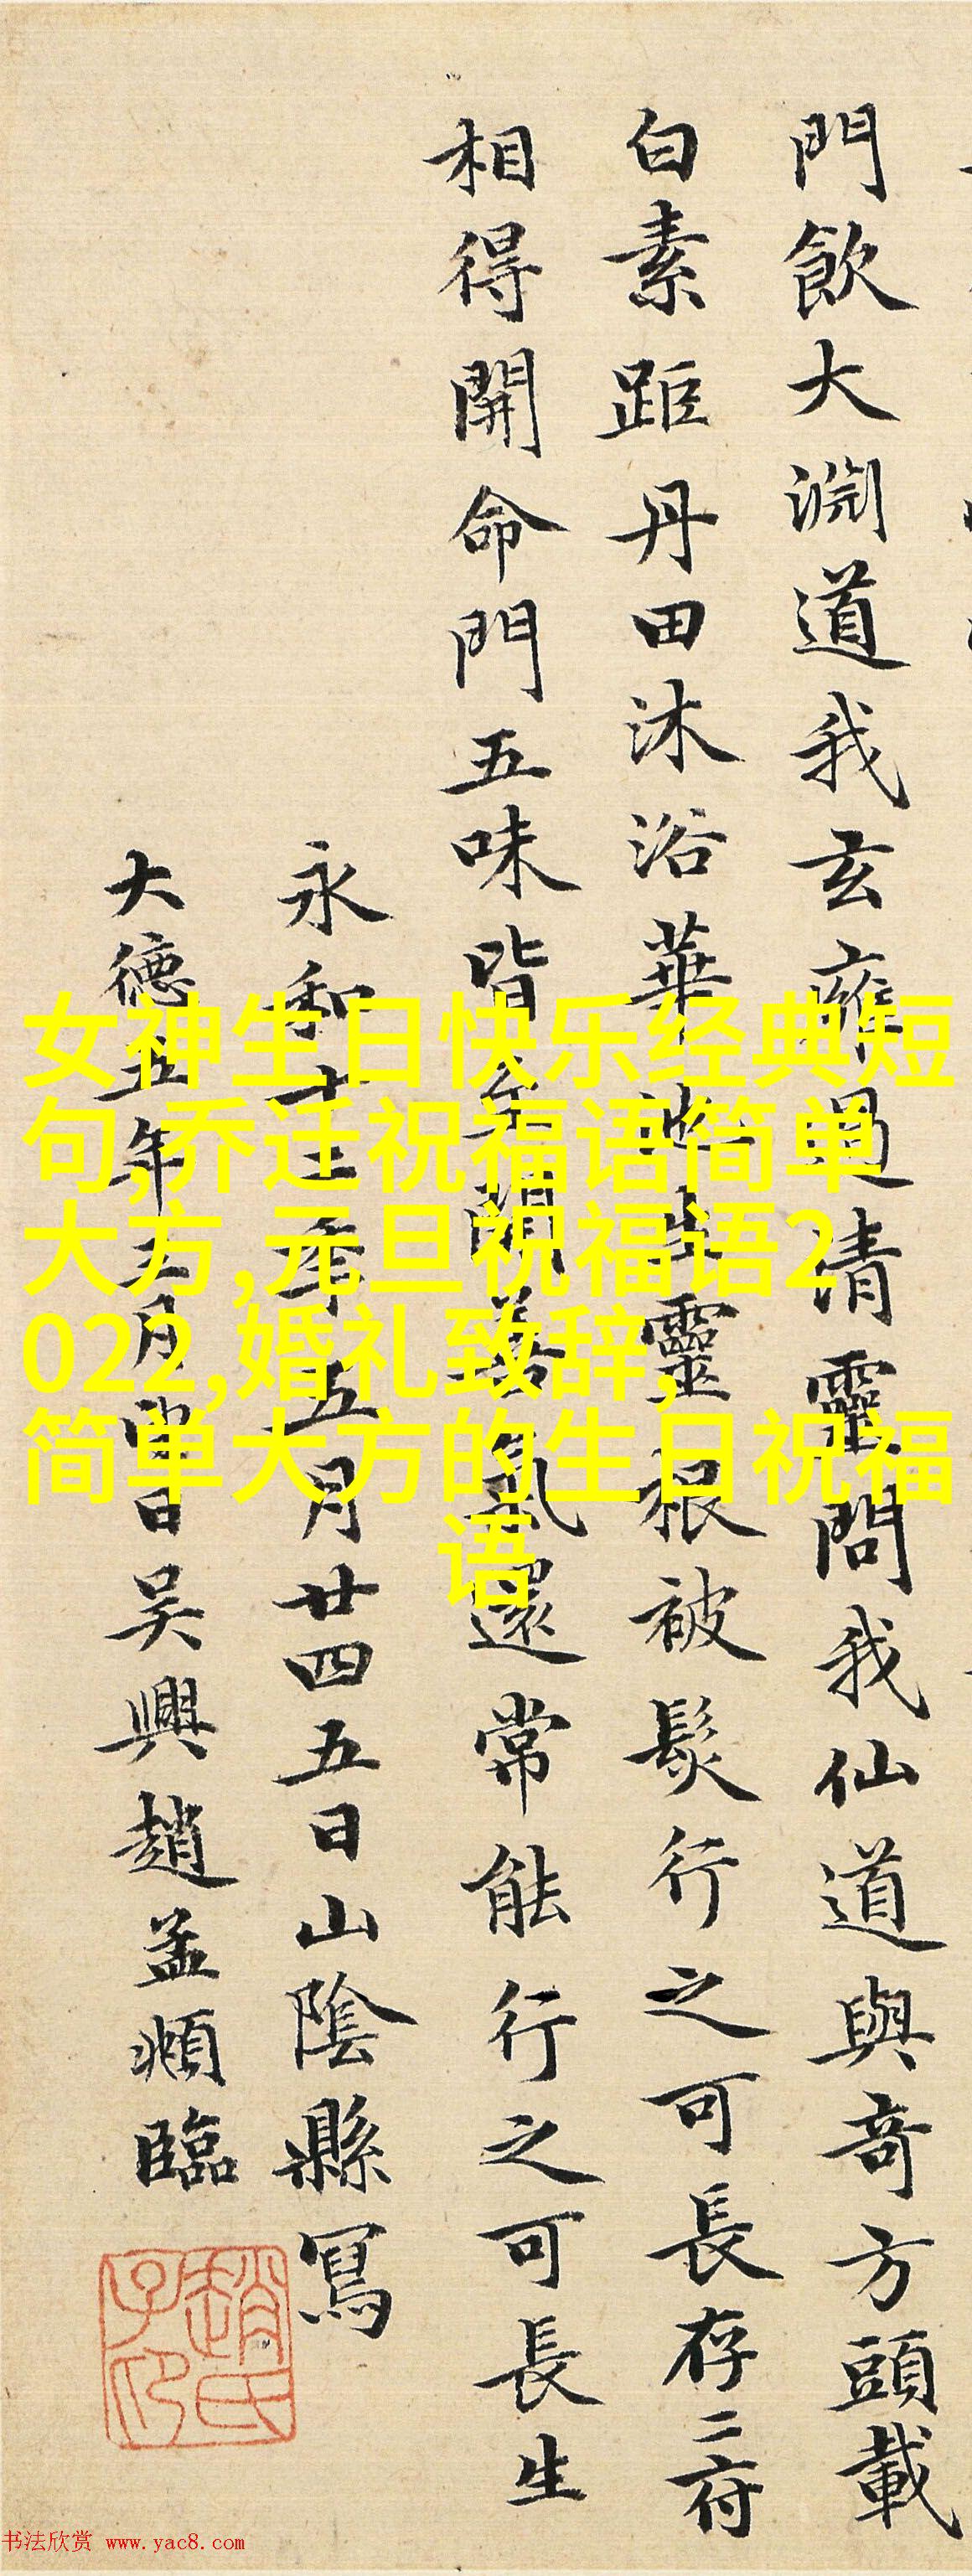 門飲大淵道我玄雍過清靈問我仙道與奇方頭載
白素距丹田沐浴華池生靈根被髮行之可長存二府
相得開命門五味皆至開善氣還常能行之可長生
永和十二年五月廿四五日山陰縣寫
大德五年 月 日吴興趙孟頫臨
趙氏子印
女神生日快乐经典短
句,乔迁祝福语简单
大方,元旦祝福语2
022,婚礼致辞,
简单大方的生日祝福
语
书法欣赏 www.yac8.com